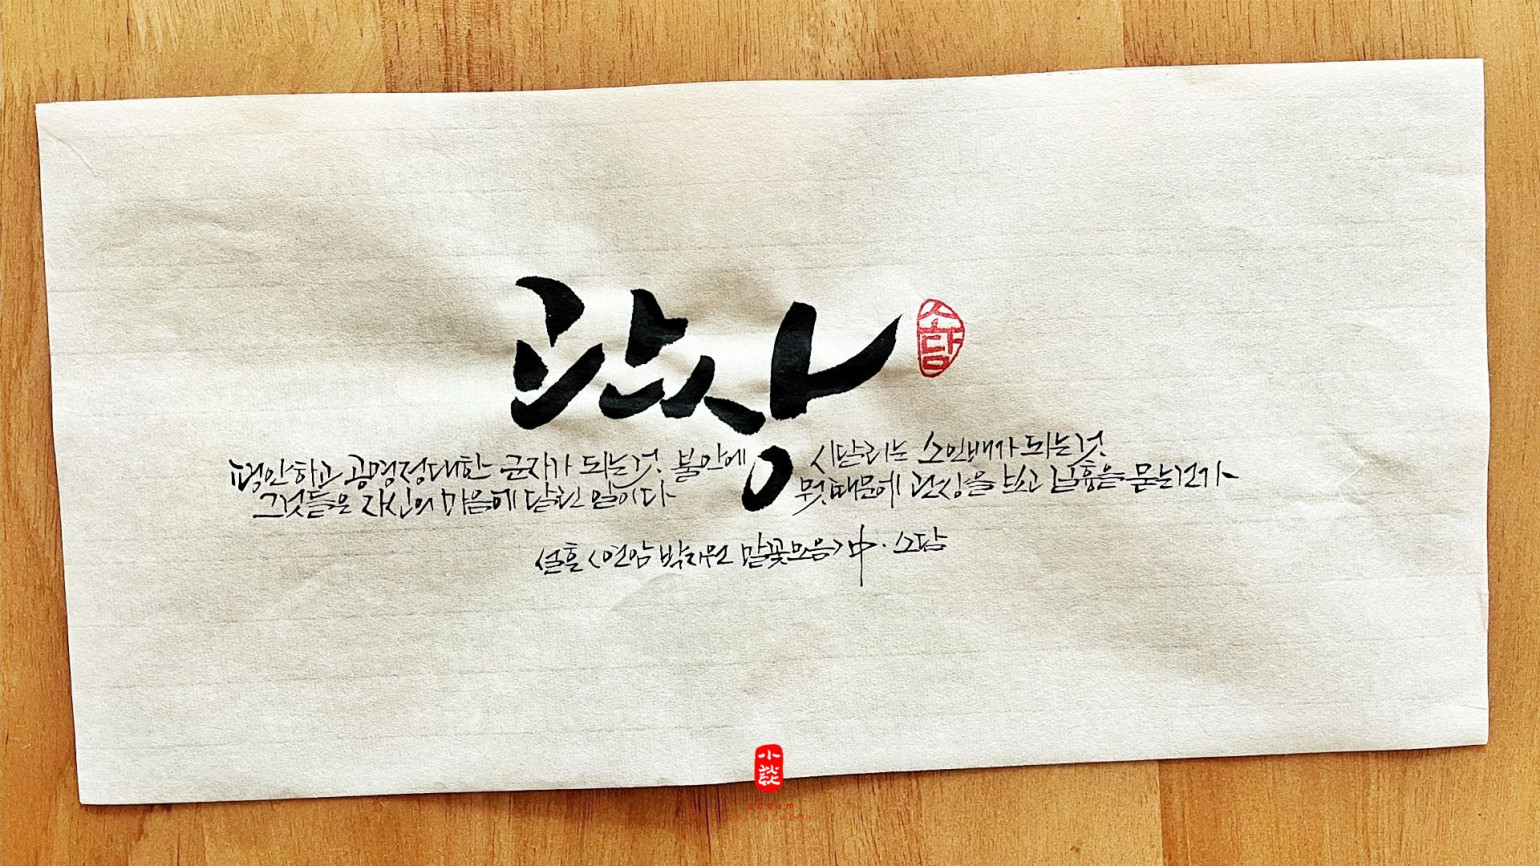 관상
소담
평안하고 공명정대한 군자가 되는것. 불안에 시달리는 소인배가 되는것.
그것들은 자신의 마음에 달린 일이다 뭣때문에 관상을 보고 길흉을 묻는건가
설흔 <연암 박지원 말꽃모음> 中·소담
小談